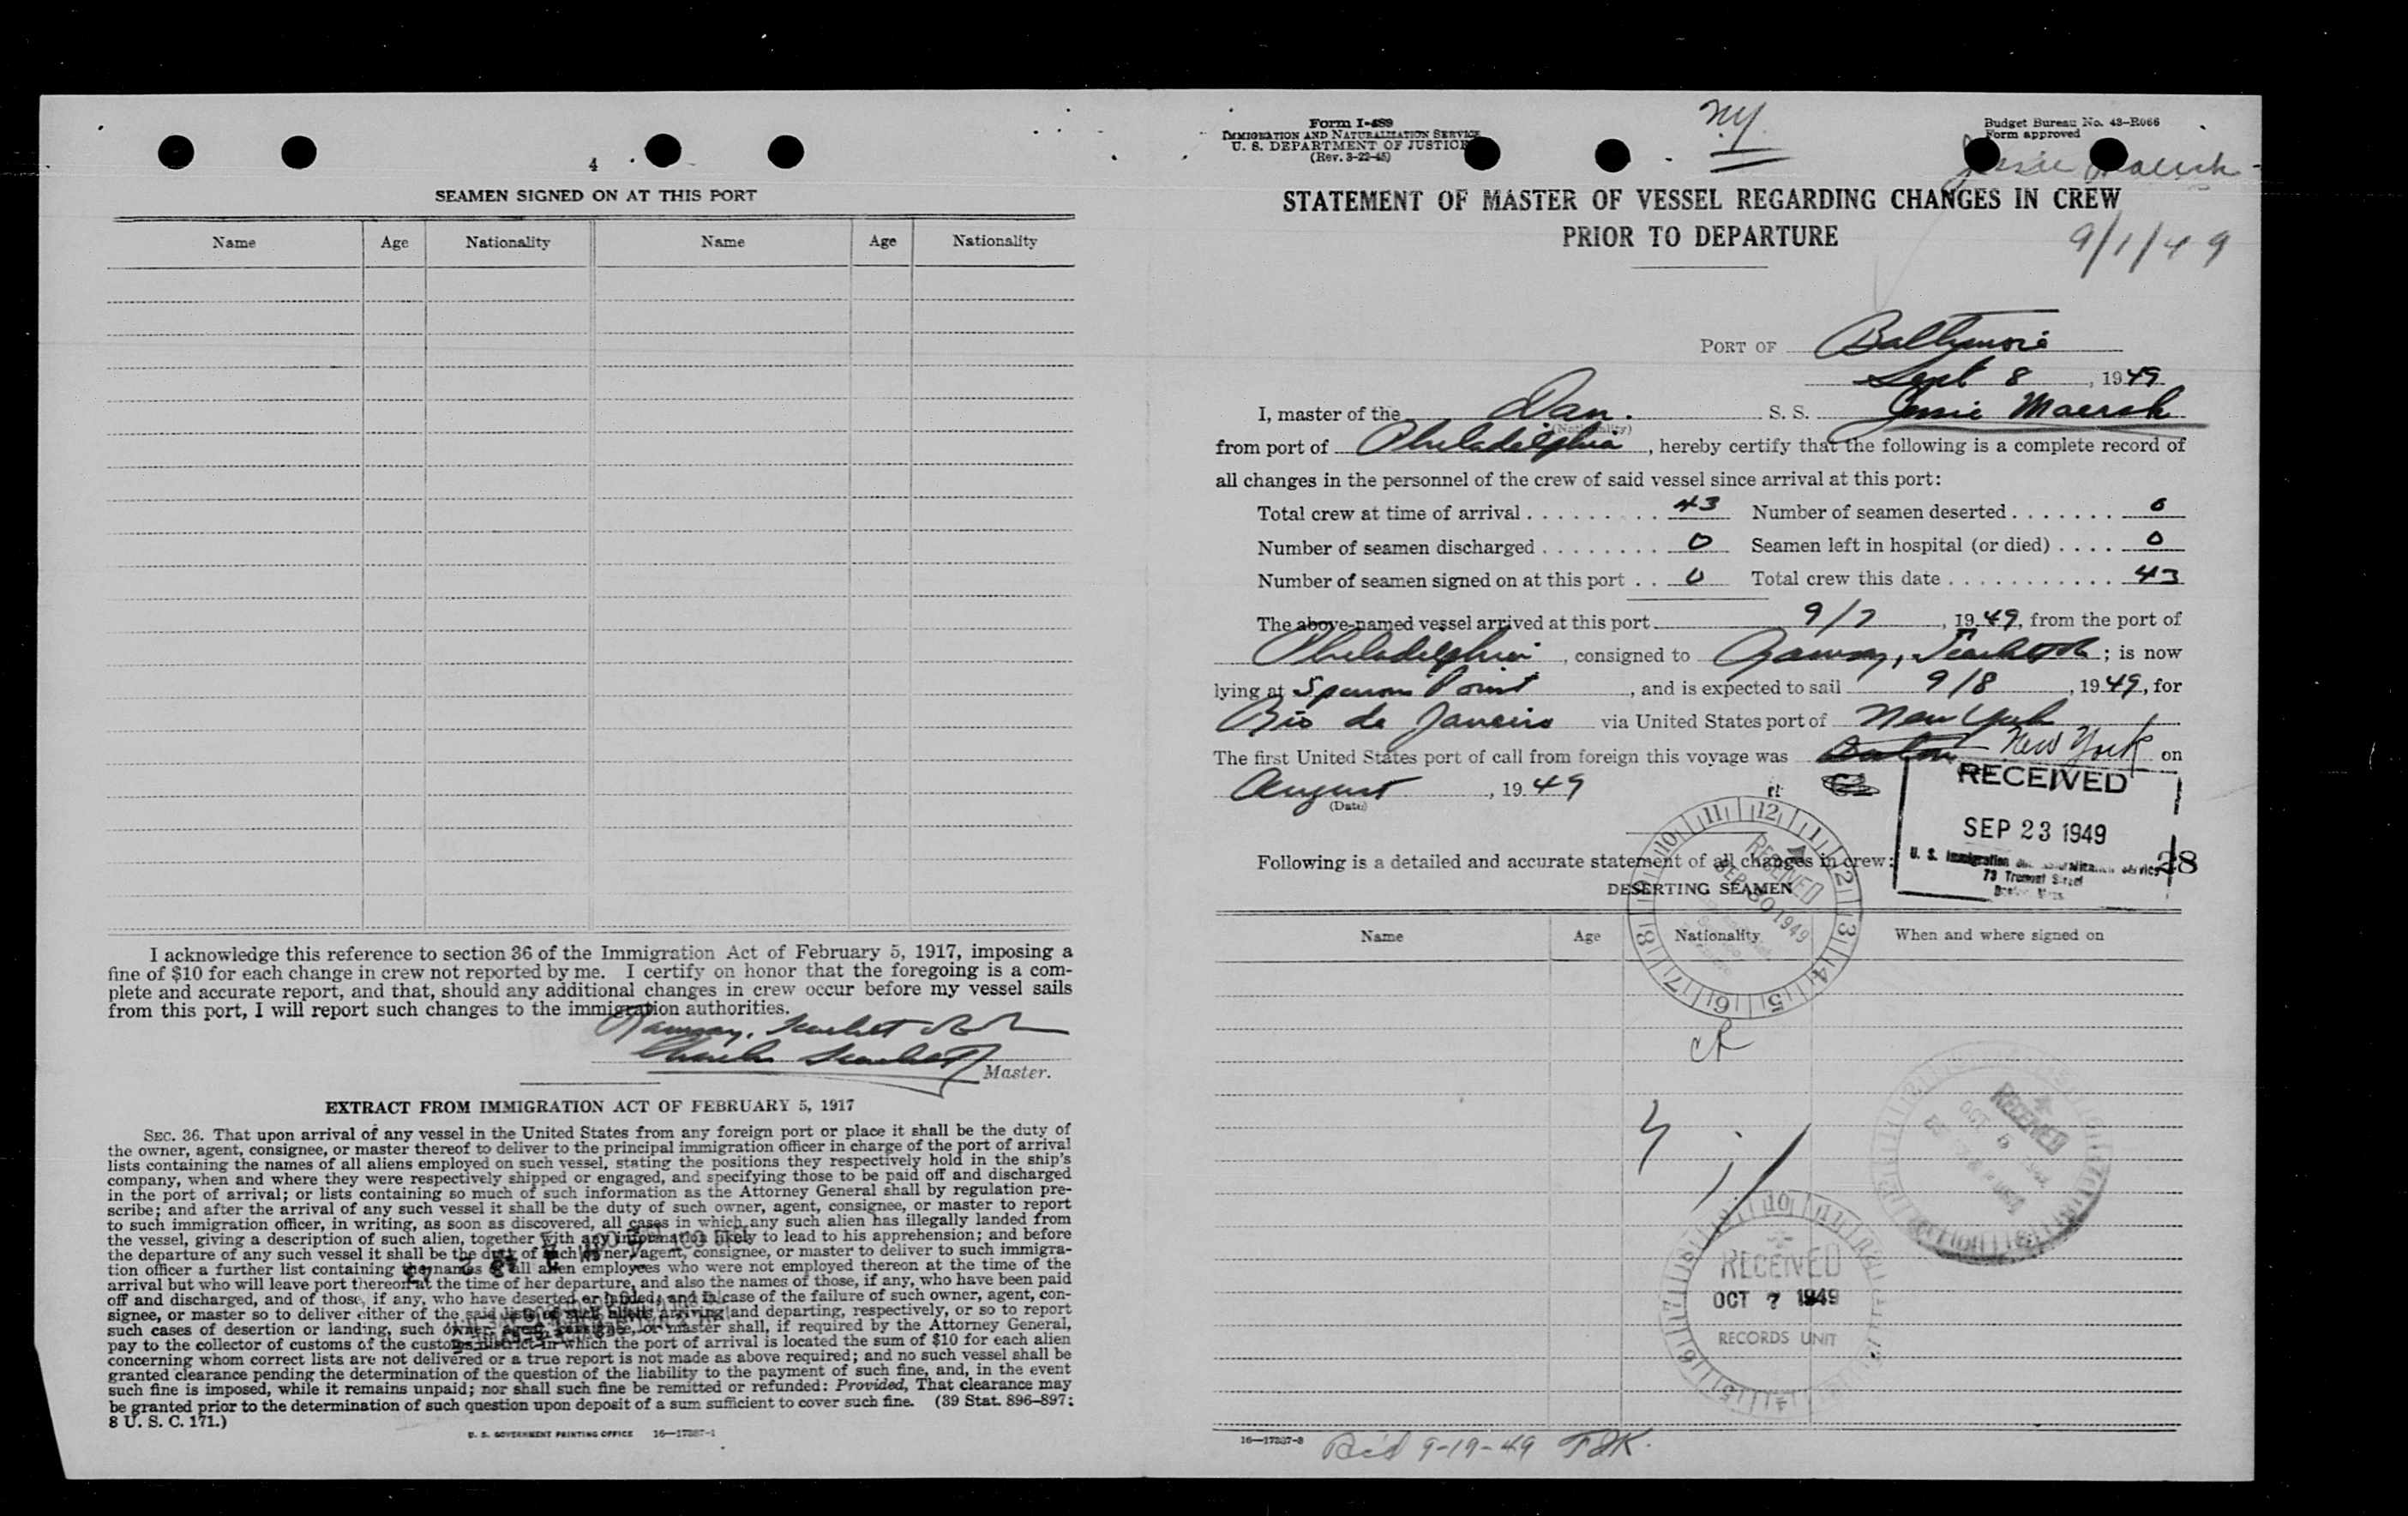 4
SEAMEN SIGNED ON AT THIS PORT
Name Age Nationality Name Age Nationality
I acknowledge this reference to section 36 of the Immigration Act of February 5, 1917, imposing a
fine of $10 for each change in crew not reported by me. I certify on honor that the foregoing is a com-
plete and accurate report, and that, should any additional changes in crew occur before my vessel sails
from this port, I will report such changes to the immigration authorities.
Ramsay, Scarlett
Charles Scarlett
Master.
EXTRACT FROM IMMIGRATION ACT OF FEBRUARY 5, 1917
SEC. 36. That upon arrival of any vessel in the United States from any foreign port or place it shall be the duty of
the owner, agent, consignee, or master thereof to deliver to the principal immigration officer in charge of the port of arrival
lists containing the names of all aliens employed on such vessel, stating the positions they respectively hold in the ship's
company, when and where they were respectively shipped or engaged, and specifying those to be paid off and discharged
in the port of arrival; or lists containing so much of such information as the Attorney General shall by regulation pre-
scribe; and after the arrival of any such vessel it shall be the duty of such owner, agent, consignee, or master to report
to such immigration officer, in writing, as soon as discovered, all cases in which any such alien has illegally landed from
the vessel, giving a description of such alien, together with any information likely to lead to his apprehension; and before
the departure of any such vessel it shall be the duty of such owner, agent, consignee, or master to deliver to such immigra-
tion officer a further list containing the names of all alien employees who were not employed thereon at the time of the
arrival but who will leave port thereon at the time of her departure, and also the names of those, if any, who have been paid
off and discharged, and of those, if any, who have deserted or landed; and in case of the failure of such owner, agent, con-
signee, or master so to deliver either of the said lists of such aliens arriving and departing, respectively, or so to report
such cases of desertion or landing, such owner, agent, consignee, or master shall, if required by the Attorney General,
pay to the collector of customs of the customs district in which the port of arrival is located the sum of $10 for each alien
concerning whom correct lists are not delivered or a true report is not made as above required; and no such vessel shall be
granted clearance pending the determination of the question of the liability to the payment of such fine, and, in the event
such fine is imposed, while it remains unpaid; nor shall such fine be remitted or refunded: Provided, That clearance may
be granted prior to the determination of such question upon deposit of a sum sufficient to cover such fine. (39 Stat. 896–897;
8 U. S. C. 171.)
U. S. GOVERNMENT PRINTING OFFICE
Form I-489
IMMIGRATION AND NATURALIZATION SERVICE
U. S. DEPARTMENT OF JUSTICE
(Rev. 3-22-45)
NY
Budget Bureau No. 43-R066
Form approved
Jessie Maersk
STATEMENT OF MASTER OF VESSEL REGARDING CHANGES IN CREW
PRIOR TO DEPARTURE
9/1/49
PORT OF Baltimore
Sept 8, 1949
I, master of the Dan. S. S. Jessie Maersk
(Nationality)
from port of Philadelphia, hereby certify that the following is a complete record of
all changes in the personnel of the crew of said vessel since arrival at this port:
Total crew at time of arrival . . . . . . . . . 43 Number of seamen deserted . . . . . . . 0
Number of seamen discharged . . . . . . . . 0 Seamen left in hospital (or died) . . . . 0
Number of seamen signed on at this port . . 0 Total crew this date . . . . . . . . . . . . 43
The above-named vessel arrived at this port 9/7, 1949, from the port of
Philadelphia, consigned to Ramsay, Scarlett; is now
lying at Sparrows Point, and is expected to sail 9/8, 1949, for
Rio de Janeiro via United States port of New York
The first United States port of call from foreign this voyage was Boston New York on
August, 1949
(Date)
RECEIVED
SEP 23 1949
U. S. Immigration and Naturalization Service
73 Tremont Street
Boston Mass.
28
Following is a detailed and accurate statement of all changes in crew:
DESERTING SEAMEN
RECEIVED
SEP 30 1949
Name Age Nationality When and where signed on
RECEIVED
OCT
RECEIVED
OCT 7 1949
RECORDS UNIT
Rec'd 9-19-49